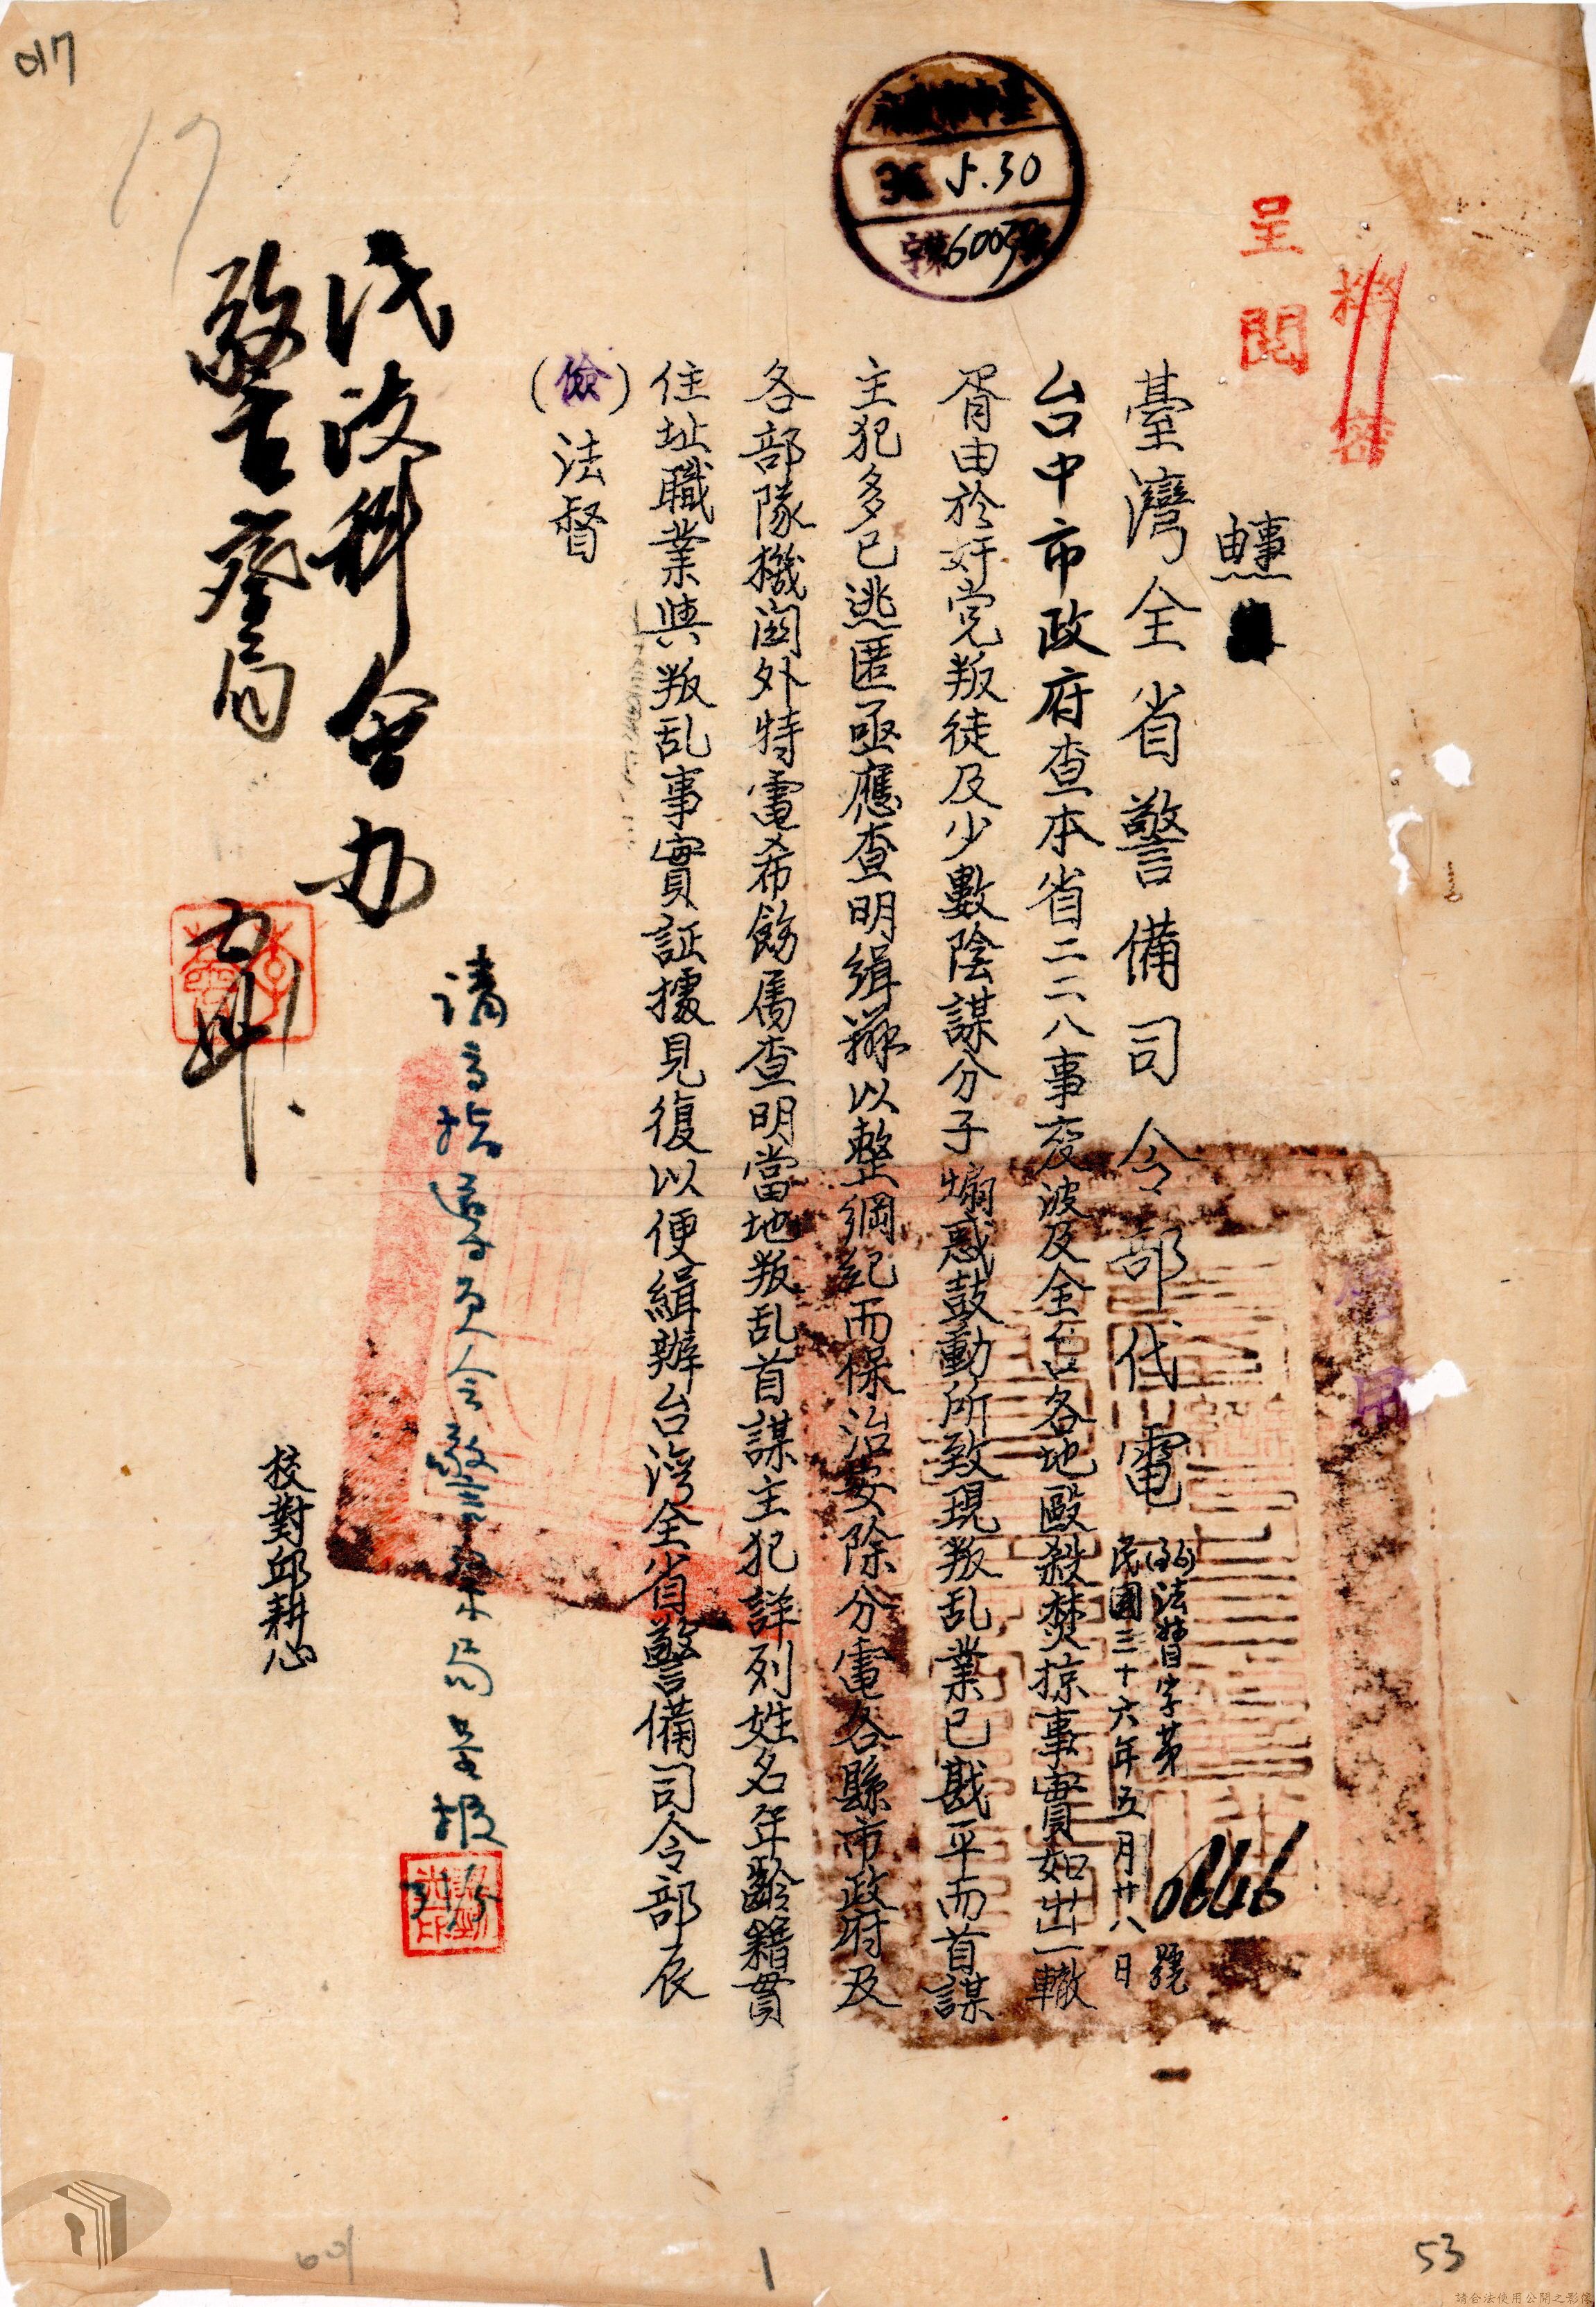 017
17
36 5.30
呈閱
機密
臺灣全省警備司令部代電
法督字第0646號
民國三十六年五月廿八日
台中市政府查本省二二八事变波及全台各地毆殺焚掠事實如出一轍
胥由於奸党叛徒及少數陰謀分子煽惑鼓動所致現叛乱業已戡平而首謀
主犯多已逃匿亟應查明緝辦以整綱紀而保治安除分電各縣市政府及
各部隊機関外特電希飭属查明當地叛乱首謀主犯詳列姓名年齡籍貫
住址職業與叛乱事實証據見復以便緝辦台湾全省警備司令部辰
(儉)法督
請高指導員令警察局呈報
31/5
民政科会办
警察局
校對邱耕心
601
1
53
請合法使用公開之影像